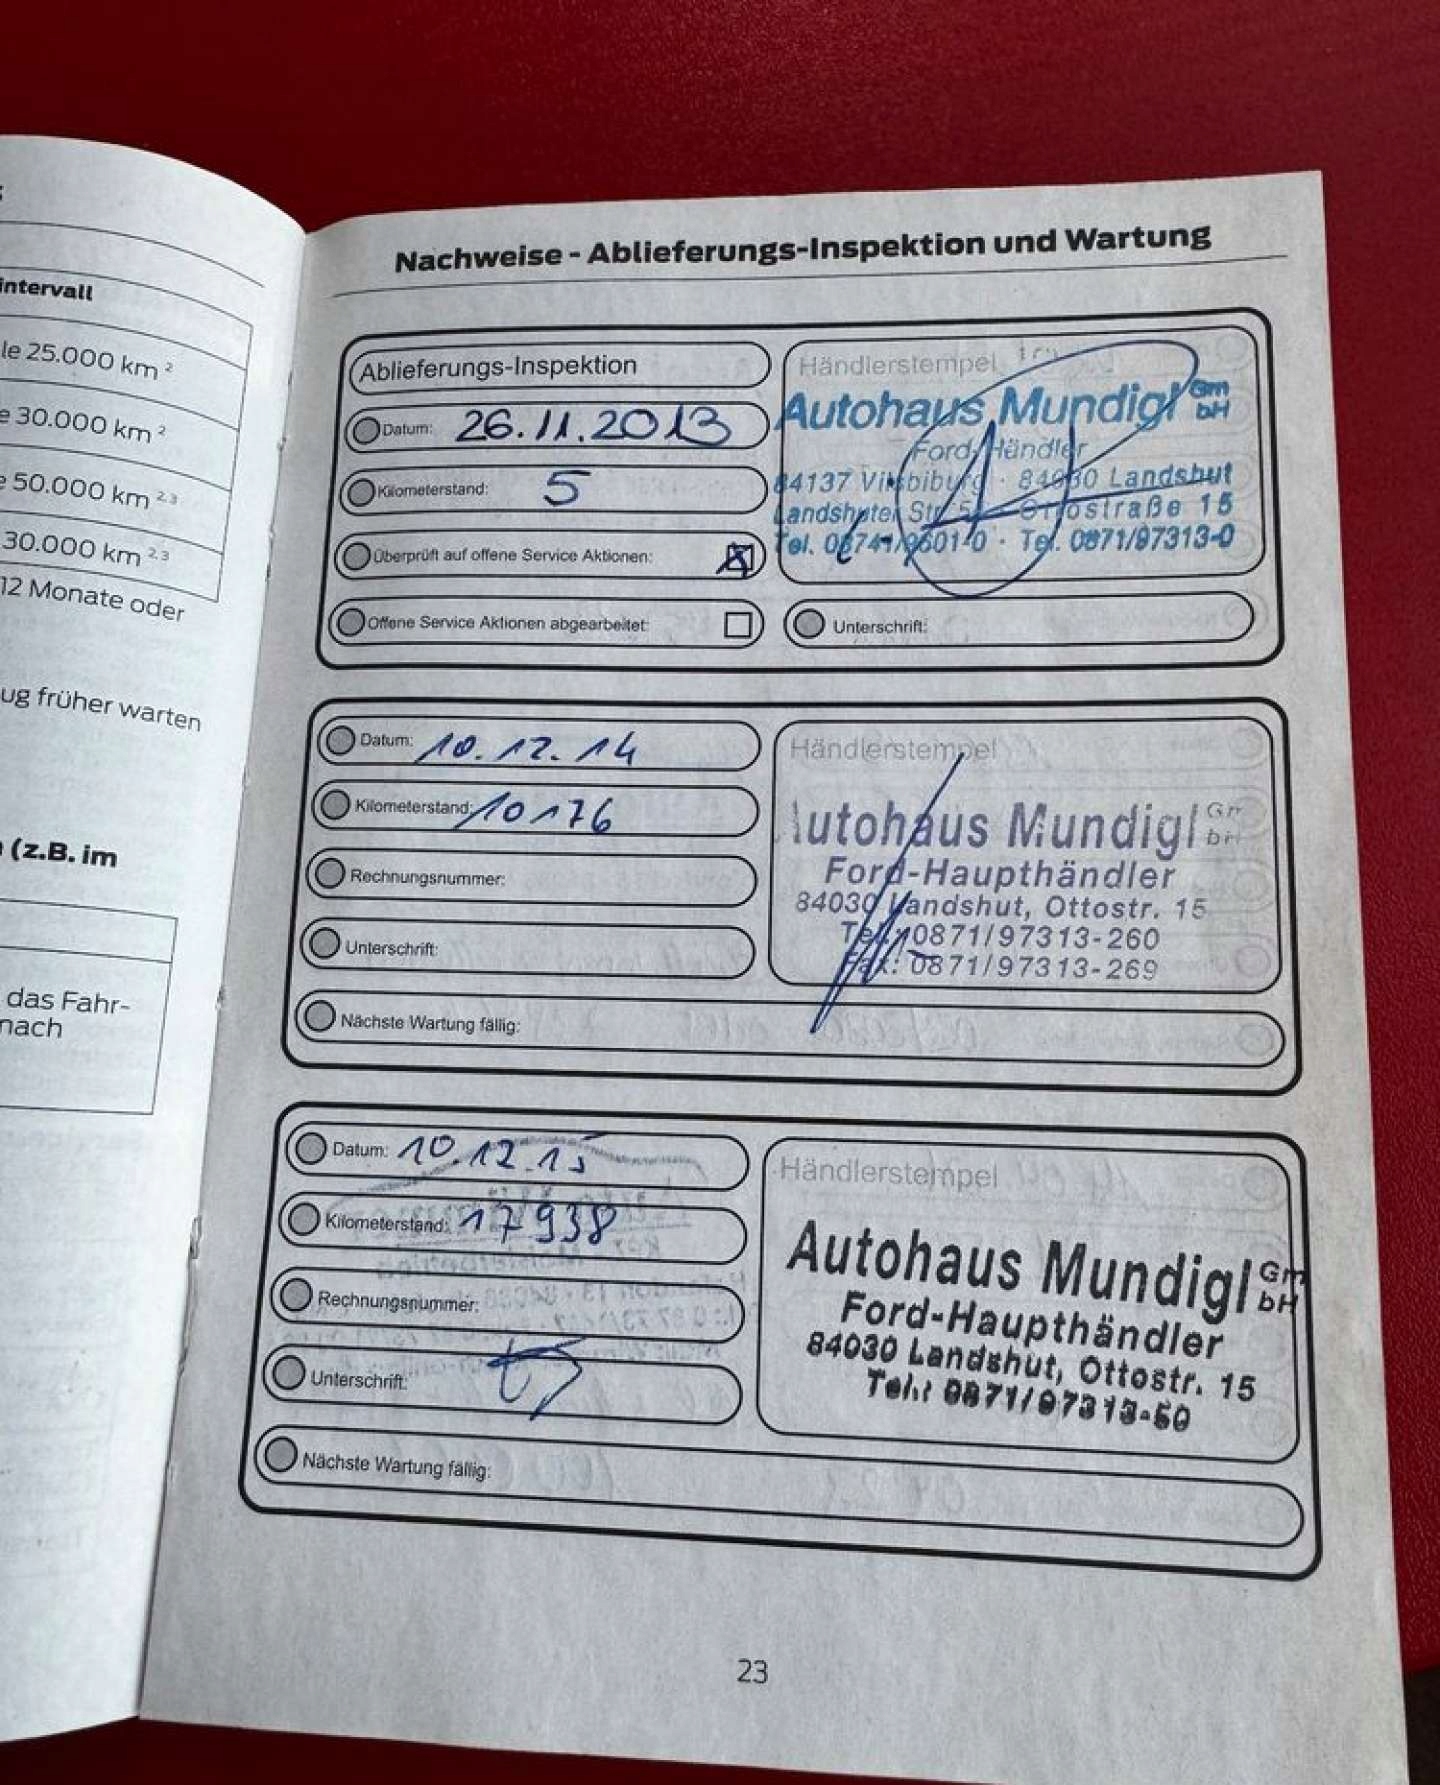 intervall
le 25.000 km ²
e 30.000 km ²
e 50.000 km ²,³
30.000 km ²,³
12 Monate oder
ug früher warten
(z.B. im
das Fahr-
nach
Nachweise - Ablieferungs-Inspektion und Wartung
Ablieferungs-Inspektion
Datum: 26.11.2013
Kilometerstand: 5
Überprüft auf offene Service Aktionen:
Offene Service Aktionen abgearbeitet:
Händlerstempel
Autohaus Mundigl GmbH
Ford-Händler
84137 Vilsbiburg · 84030 Landshut
Landshuter Str. Ottostraße 15
Tel. 08741/9601-0 · Tel. 0871/97313-0
Unterschrift:
Datum: 10.12.14
Kilometerstand: 10176
Rechnungsnummer:
Unterschrift:
Nächste Wartung fällig:
Händlerstempel
Autohaus Mundigl GmbH
Ford-Haupthändler
84030 Landshut, Ottostr. 15
Tel.: 0871/97313-260
Fax: 0871/97313-269
Datum: 10.12.15
Kilometerstand: 17938
Rechnungsnummer:
Unterschrift:
Nächste Wartung fällig:
Händlerstempel
Autohaus Mundigl GmbH
Ford-Haupthändler
84030 Landshut, Ottostr. 15
Tel.: 0871/97313-50
23